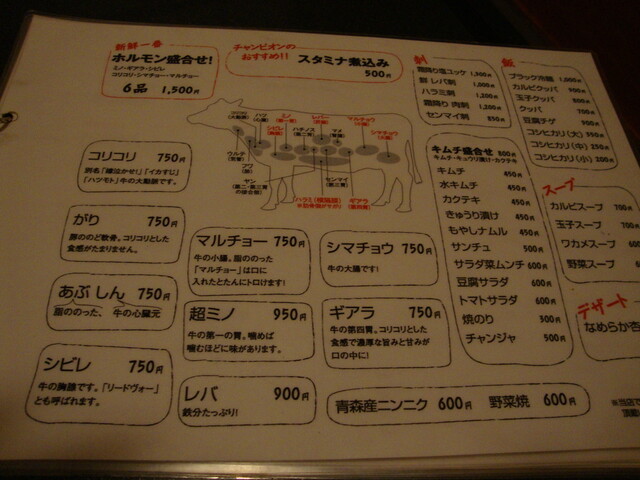 新鮮一番
ホルモン盛合せ!
ミノ・ギアラ・シビレ
コリコリ・シマチョー・マルチョー
6品 1,500円
チャンピオンの
おすすめ!!
スタミナ煮込み
500円
コリコリ 750円
「ハツモト」牛の大動脈です。
がり 750円
豚ののど軟骨。コリコリとした
食感がたまりません。
あぶしん 750円
脂ののった、牛の心臓元
シビレ 750円
牛の胸腺です。「リードヴォー」
とも呼ばれます。
マルチョー 750円
牛の小腸。脂ののった
「マルチョー」は口に
入れたとたんにトロけます!
超ミノ 950円
牛の第一の胃。噛めば
噛むほどに味があります。
レバ 900円
鉄分たっぷり!
シマチョウ 750円
牛の大腸です!
ギアラ 750円
牛の第四胃。コリコリとした
食感で濃厚な旨みと甘みが
口の中に!
青森産ニンニク 600円 野菜焼 600円
ハツ
ミノ
レバー
マルチョウ
シマチョウ
シビレ
ハチノス
マメ
ウルテ
ヤン
センマイ
ギアラ
刺
霜降り塩ユッケ
鮮レバ刺 1,000円
ハラミ刺 1,200円
霜降り肉刺 1,200円
センマイ刺 850円
キムチ盛合せ 800円
キムチ・キュウリ漬け・カクテキ
キムチ 450円
水キムチ 450円
カクテキ 450円
きゅうり漬け 450円
もやしナムル 450円
サンチュ 500円
サラダ菜ムンチ 600円
豆腐サラダ 600円
トマトサラダ 600円
焼のり 300円
チャンジャ 500円
飯
ブラック冷麺 1,000円
カルビクッパ 900円
玉子クッパ 800円
クッパ 700円
豆腐チゲ 900円
コシヒカリ(大) 350円
コシヒカリ(中) 250円
コシヒカリ(小) 200円
スープ
カルビスープ 700
玉子スープ 700
ワカメスープ 600
野菜スープ 6
デザート
なめらか杏
※当店で